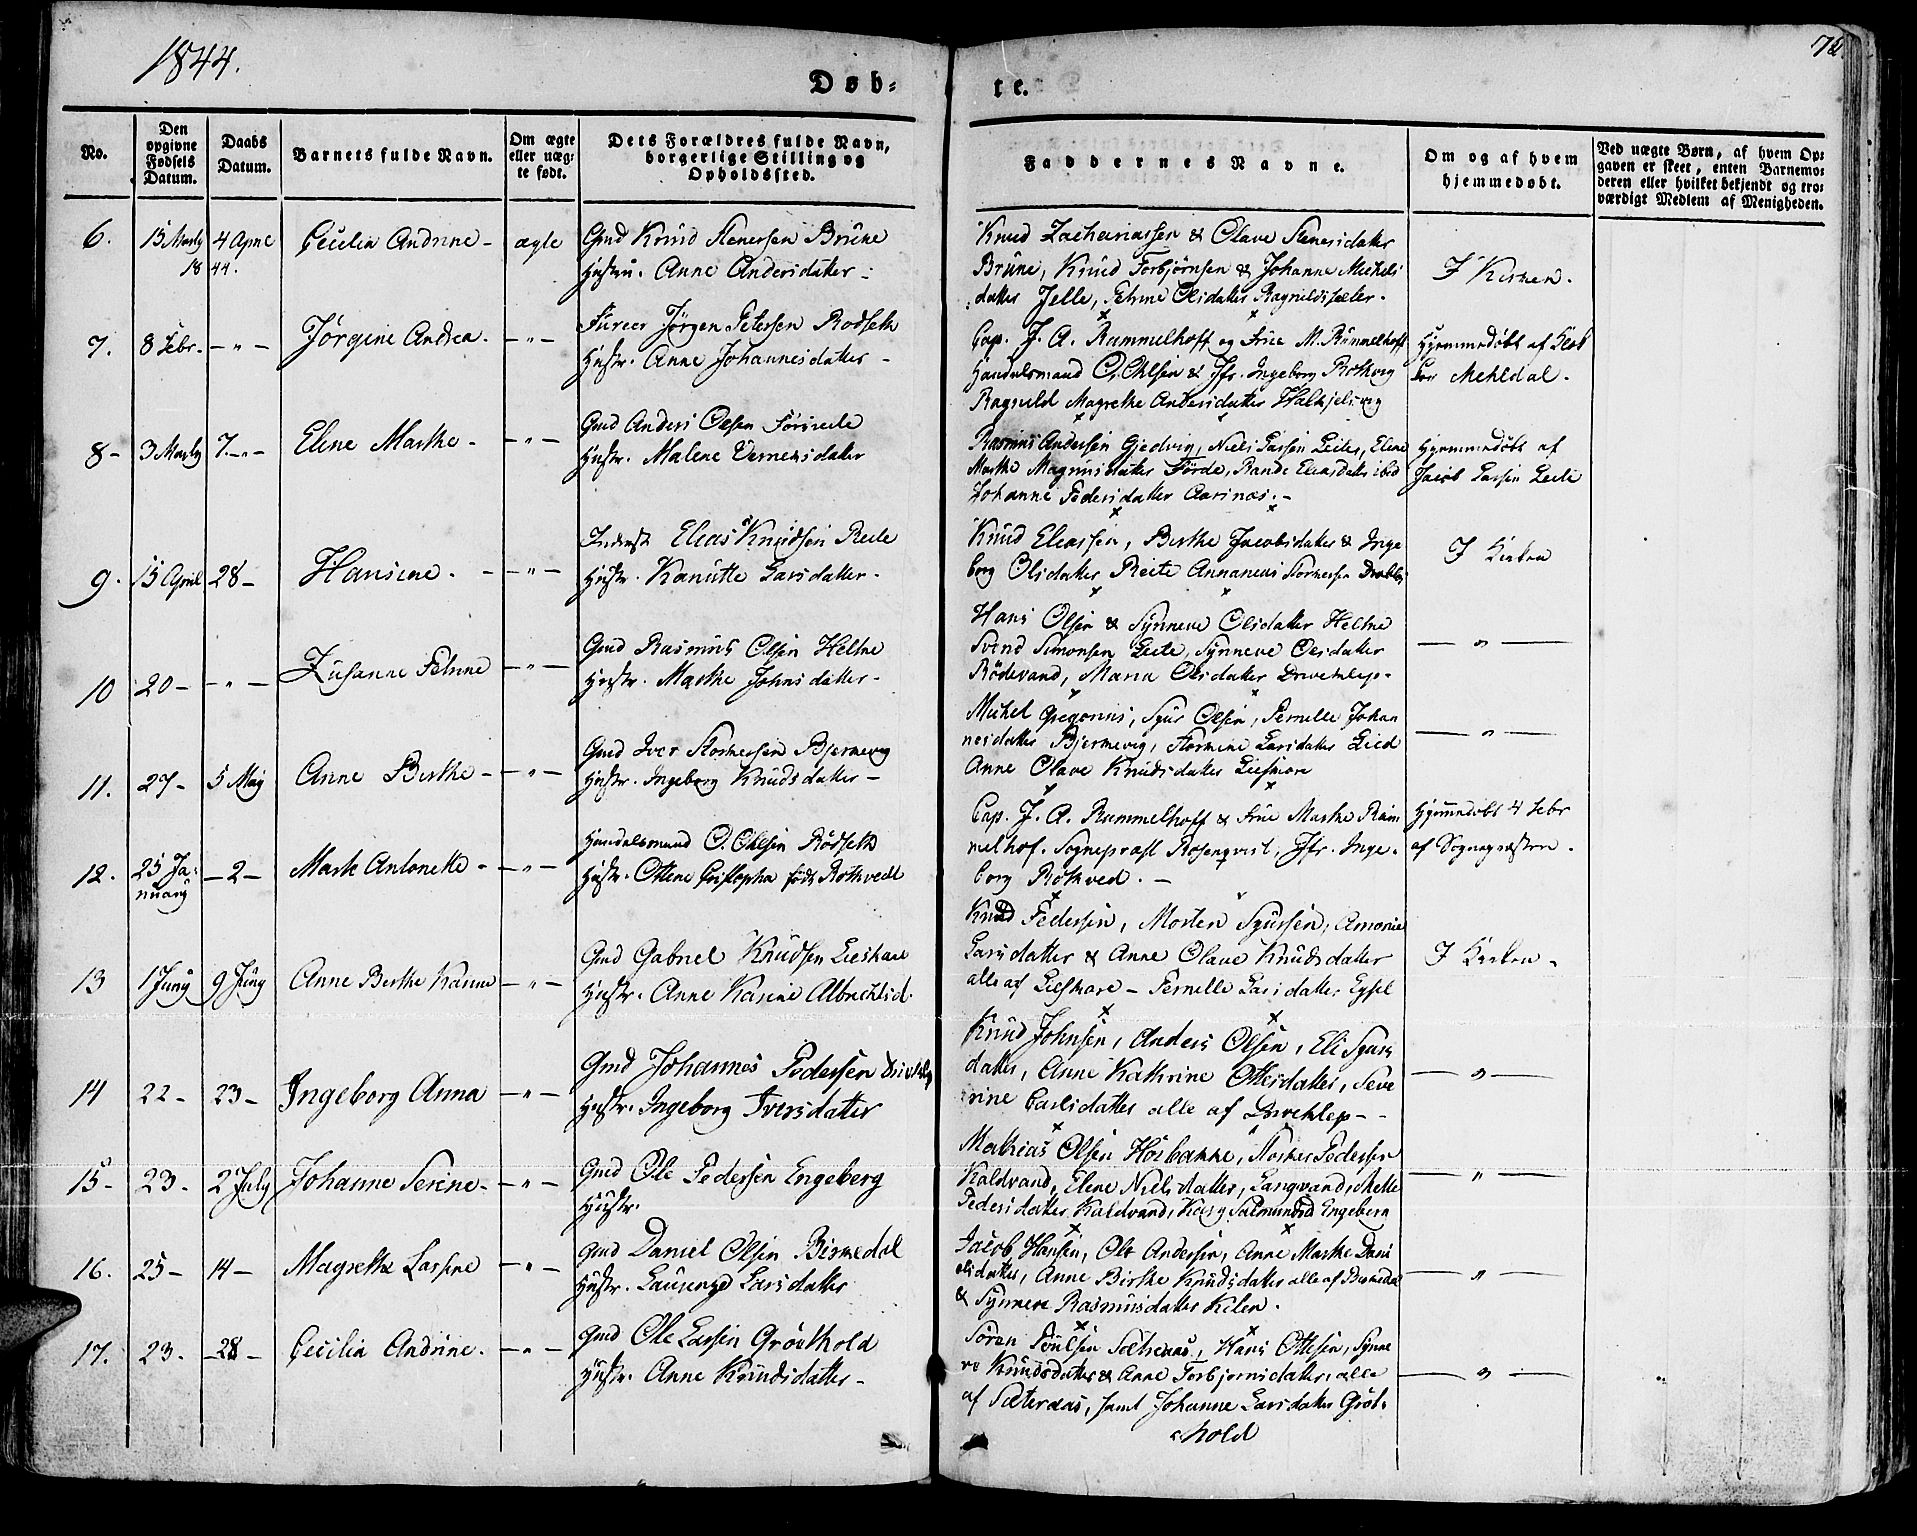 1844.
72
Døb-
te.
No.
Den opgivne Fødsels Datum.
Daabs Datum.
Barnets fulde Navn.
Om ægte eller uæg-te født.
Dets Forældres fulde Navn, borgerlige Stilling og Opholdssted.
Faddernes Navne.
Om og af hvem hjemmedøbt.
Ved uægte Børn, af hvem Op-gaven er skeet, enten Barnemo-deren eller hvilket bekjendt og tro-værdigt Medlem af Menigheden.
6. 15 Marty 4 Aprie Cecilia Andrine - ægte Gmd Knud Stenersen Brune
1844.
Hustru. Anne Andersdatter
Knud Zachariassen & Olave Stenersdatter
Brune, Knud Torbjørnsen & Johanne Michels
datter Jelle, Petrine Olsdatter Ragnildsæter.
I Kirken.
7. 8 Febr. - " - Jørgine Andrea. - " - Jørgen Petersen Rodseth
Hustr. Anne Johannesdatter -
Cap. J. A. Rummelhoff og Frue M. Rummelhoff
Handelsmand O. Ohlsen & Jfr. Ingeborg Rothvig
Ragnild Magrethe Andersdatter
Hjemmedøbt af
Mehldal.
8 - 3 Marty 7. - " - Elene Marthe - - " - Gmd Anders Olsen
Hustr. Malene
Rasmus Andersen Gjedvig, Niels Larsen Leite, Elene
Marthe Magnusdatter Førde, Rande Eliasdatter ibid
Johanne Pedersdatter Aarsnæs. -
Hjemmedøbt af
Jacob Larsen Leite
9. 15 April 28 - Hansine. - " - Inderst Elias Knudsen Reite
Hustr. Kanutte Larsdatter -
Knud Eliassen, Birthe Jacobsdatter & Inge
borg Olsdatter Reite Annaneas
I Kirken
10 20 - - " - Zusanne Petrine - " - Gmd Rasmus Olsen Heltne
Hustr. Marthe Johnsdatter -
Hans Olsen & Synneve Olsdatter Heltne
Svend Simonsen Leite, Synneve Olsdatter
Rødevand, Maria Olsdatter Drivehlep.
- " -
11. 27 - 5 May Anne Birthe - - " - Gmd Iver Bjernevig
Hustr. Ingeborg Knudsdatter -
Michel Gregorius, Syur Olsen, Pernille Johan
nesdatter Bjernevig, Larsdatter Lied
Anne Olave Knudsdatter Lieshore
- " -
12. 25 Ja-nuary - 2 - Marte Antonette - - " - Handelsmand O. Ohlsen Rødseth
Hustr. Ottene født Rothvedt
Cap. J. A. Rummelhoff & Frue Marthe Rum
melhof. Sognepræst Rosenqvist, Jfr. Inge-
borg Rothved. -
Hjemmedøbt 4 Febr
af Sognepræsten.
13 1 Juny 9 Juny Anne Berthe Karine - " - Gmd Gabriel Knudsen Lieshare
Hustr. Anne Karine Albrechtsd.
Knud Pedersen, Morten Syursen,
Larsdatter & Anne Olave Knudsdatter
alle af Lieshare - Pernille Larsdatter
I Kirken -
14 22 - 23 - Ingeborg Anna - " - Gmd Johannes Pedersen
Hustr. Ingeborg Iversdatter
Knud Johnsen, Anders Olsen, Eli Syurs
datter, Anne Kathrine Ottersdatter, Seve
rine Carlsdatter alle af Drivehlep - -
- " -
15 - 23 - 2 July Johanne Serine - - " - Gmd Ole Pedersen Engeberg
Hustr.
Mathias Olsen Høibakke, Pedersen
Kaldvand, Elene Nielsdatter, Langvand, Mette
Pedersdatter Kaldvand, Kary Salmundsd Engeberg
- " -
16. 25 - 14 - Magrethe Larsine - " - Gmd Daniel Olsen Birkedal
Hustr. Larsdatter
Jacob Hansen, Ole Andersen, Anne Marthe Dani
elsdatter, Anne Birthe Knudsdatter alle af Birkedal
& Synneve Rasmusdatter Kilen.
- " -
17. 23 - - 28 - Cecilia Andrine. - " - Gmd Ole Larsen Grøthold
Hustr. Anne Knudsdatter -
Søren Poulsen Sæternæs, Hans Ottesen, Synne
ve Knudsdatter & Anne Torbjørnsdatter, alle
af Sæternæs, samt Johanne Larsdatter Grøt-
hold
- " -
"